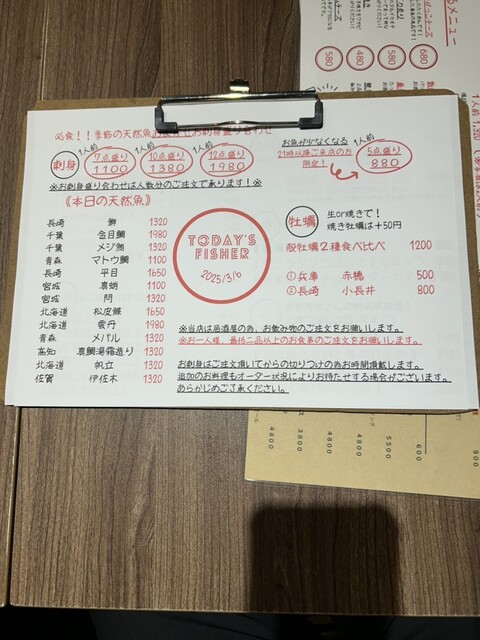 必食！！季節の天然魚おまかせお刺身盛り合わせ
刺身
1人前
7点盛り
1100
1人前
10点盛り
1380
1人前
12点盛り
1980
お魚が少なくなる
21時以降ご来店の方
限定！
1人前
5点盛り
880
※お刺身盛り合わせは人数分のご注文で承ります！※
《本日の天然魚》
長崎 鰤 1320
千葉 金目鯛 1980
千葉 メジ鮪 1320
青森 マトウ鯛 1100
長崎 平目 1650
宮城 真蛸 1100
宮城 閖 1320
北海道 松皮鰈 1650
北海道 雲丹 1980
青森 メバル 1320
高知 真鯛湯霜造り 1320
北海道 帆立 1320
佐賀 伊佐木 1320
TODAY'S
FISHER
2025/3/6
牡蠣
生or焼きで！
焼き牡蠣は+50円
殻牡蠣2種食べ比べ 1200
①兵庫 赤穂 500
②長崎 小長井 800
※当店は居酒屋の為、お飲み物のご注文をお願いします。
※お一人様、最低二品以上のお食事のご注文をお願いします。
お刺身はご注文頂いてからの切りつけの為お時間頂戴します。
追加のお料理もオーダー状況によりお待たせする場合がございます。
あらかじめご了承ください。
メニュー
680
580
480
580
1人前 1,320
900
600
5500
4800
4800
4800
4800